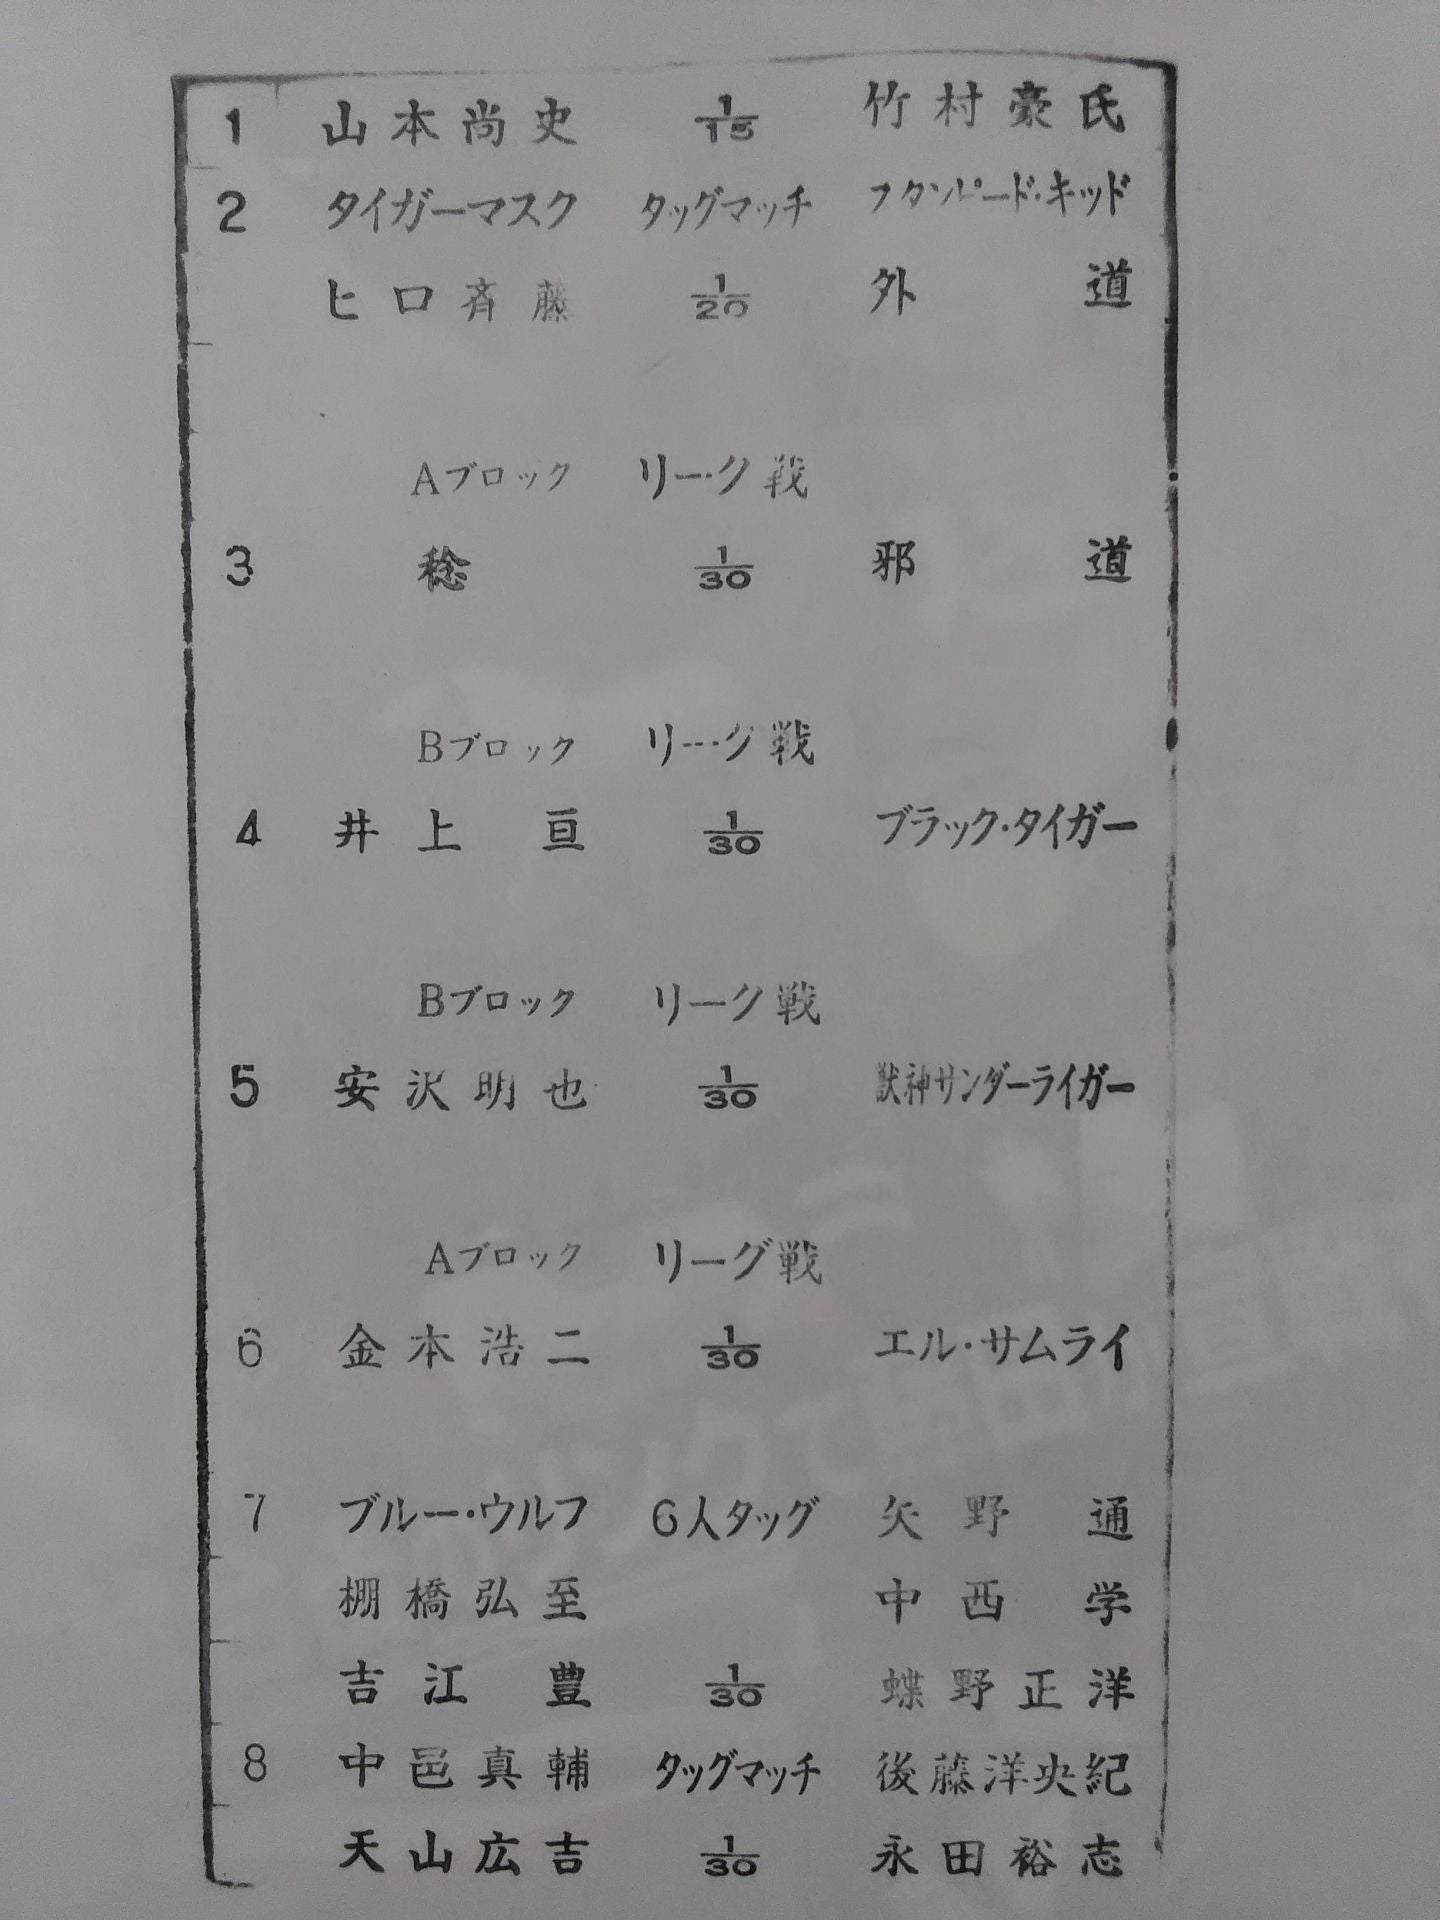 1 山本尚史 1/15 竹村豪氏
2 タイガーマスク タッグマッチ スタンピード・キッド
ヒロ斉藤 1/20 外道
Aブロック リーグ戦
3 稔 1/30 邪道
Bブロック リーグ戦
4 井上亘 1/30 ブラック・タイガー
Bブロック リーグ戦
5 安沢明也 1/30 獣神サンダーライガー
Aブロック リーグ戦
6 金本浩二 1/30 エル・サムライ
7 ブルー・ウルフ 6人タッグ 矢野通
棚橋弘至 中西学
吉江豊 1/30 蝶野正洋
8 中邑真輔 タッグマッチ 後藤洋央紀
天山広吉 1/30 永田裕志